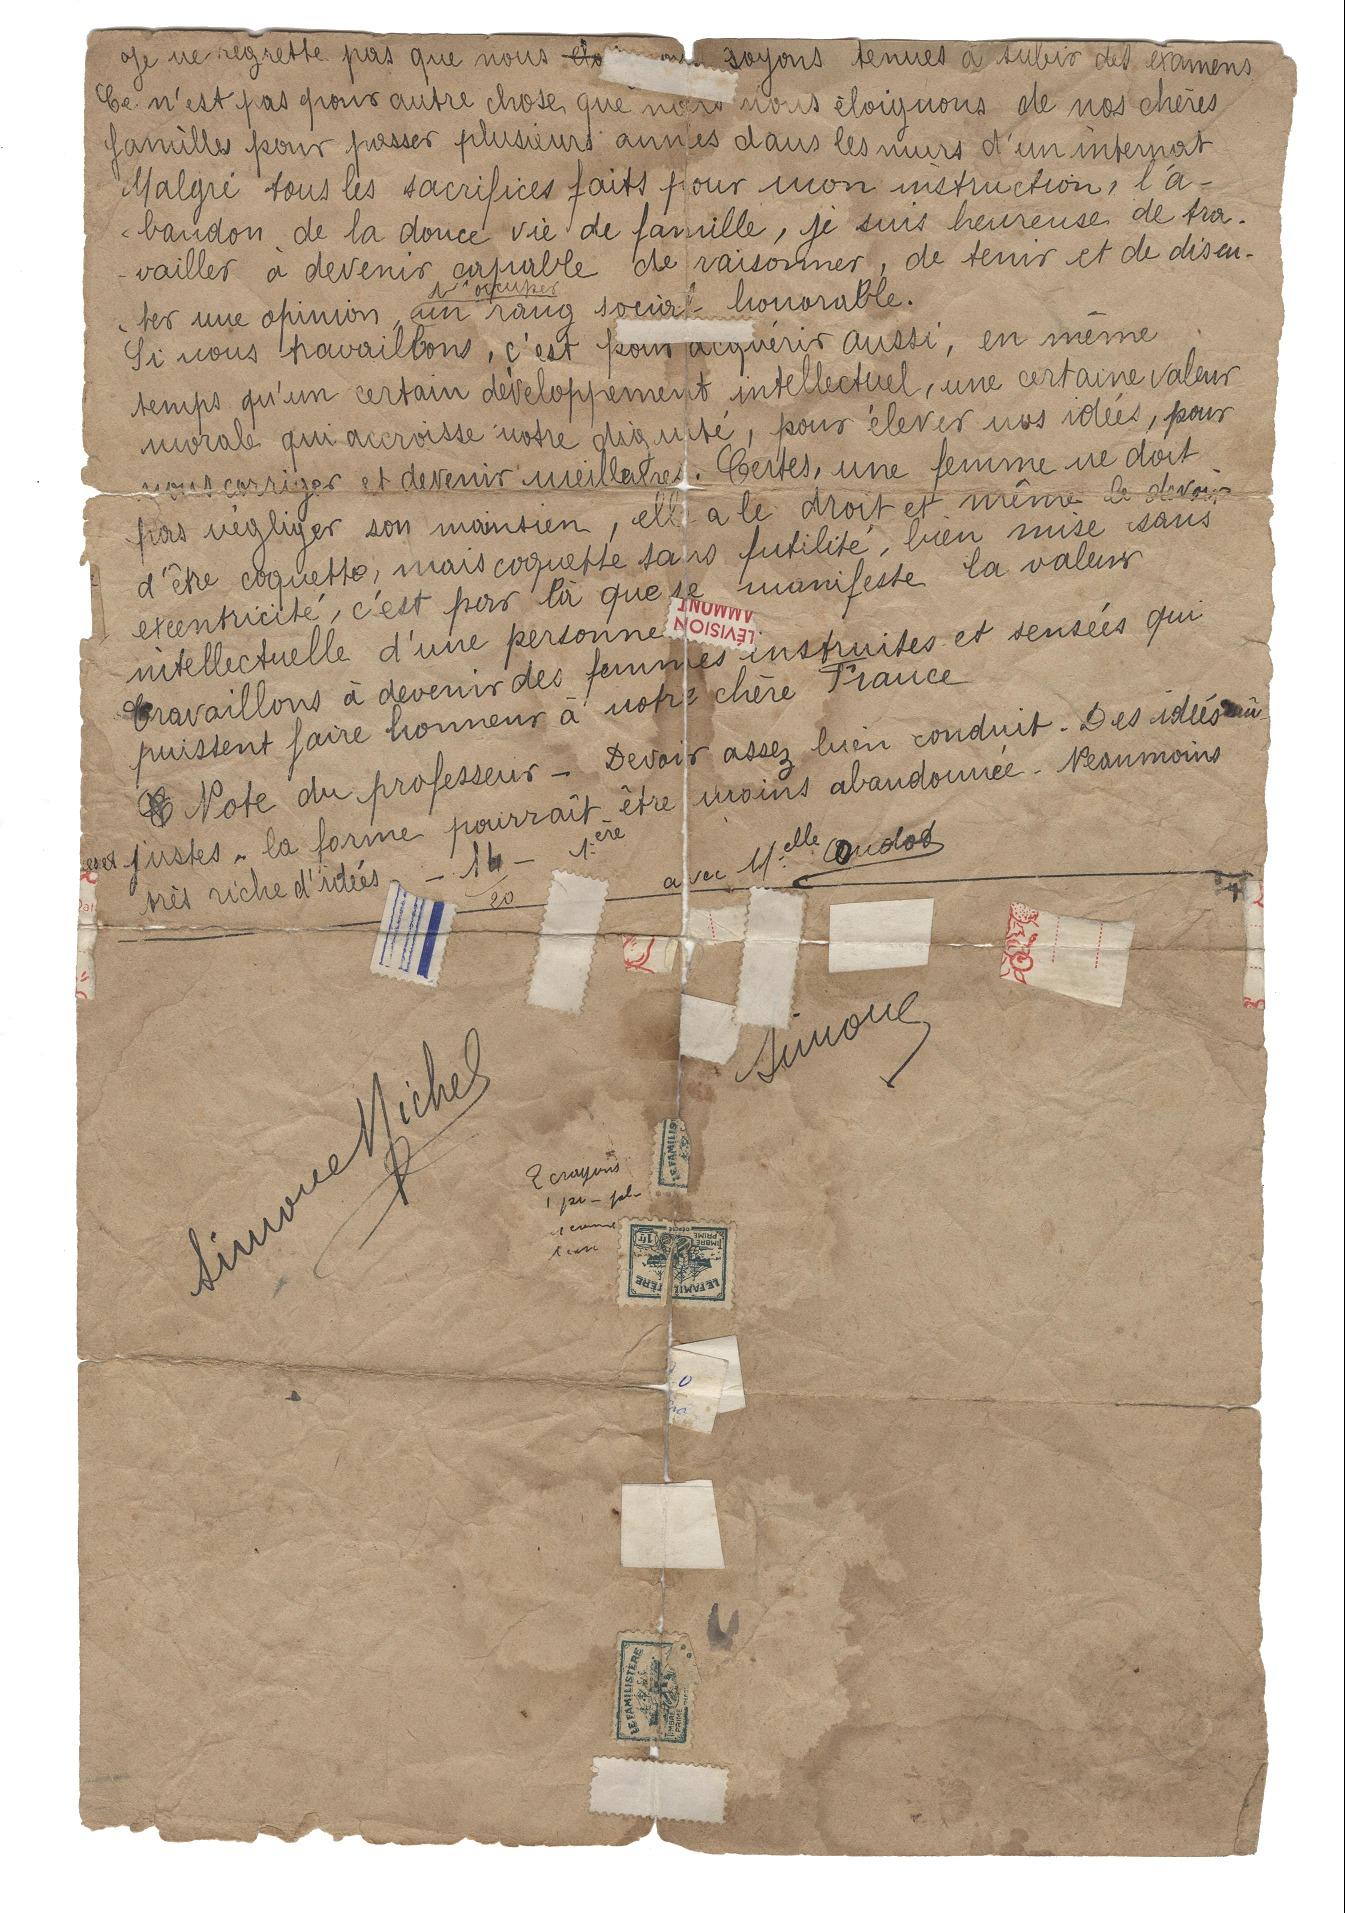 Je ne regrette pas que nous soyons tenues à subir des examens
Ce n'est pas pour autre chose que nous nous éloignons de nos chères
familles pour passer plusieurs années dans les murs d'un internat
Malgré tous les sacrifices faits pour mon instruction, l'a-
bandon de la douce vie de famille, je suis heureuse de tra-
vailler à devenir capable de raisonner, de tenir et de discu-
d'occuper
ter une opinion, un rang social honorable.
Si nous travaillons, c'est pour acquérir aussi, en même
temps qu'un certain développement intellectuel, une certaine valeur
morale qui accroisse notre dignité, pour élever nos idées, pour
nous corriger et devenir meilleures. Certes, une femme ne doit
pas négliger son maintien, elle a le droit et même le devoir
d'être coquette, mais coquette sans futilité, bien mise sans
excentricité, c'est par là que se manifeste la valeur
intellectuelle d'une personne
LÉVISION
AMMONT
Travaillons à devenir des femmes instruites et sensées qui
puissent faire honneur à notre chère France
Note du professeur - Devoir assez bien conduit. Des idées
justes. la forme pourrait être moins abandonnée. Neanmoins
très riche d'idées - 14/20 - 1ère avec Melle Oudot
Simone
Simone Michel
2 crayons
LE FAMILIS
TIMBRE PRIME
1fr
LE FAMILISTÈRE
0
LE FAMILISTÈRE
TIMBRE
PRIME